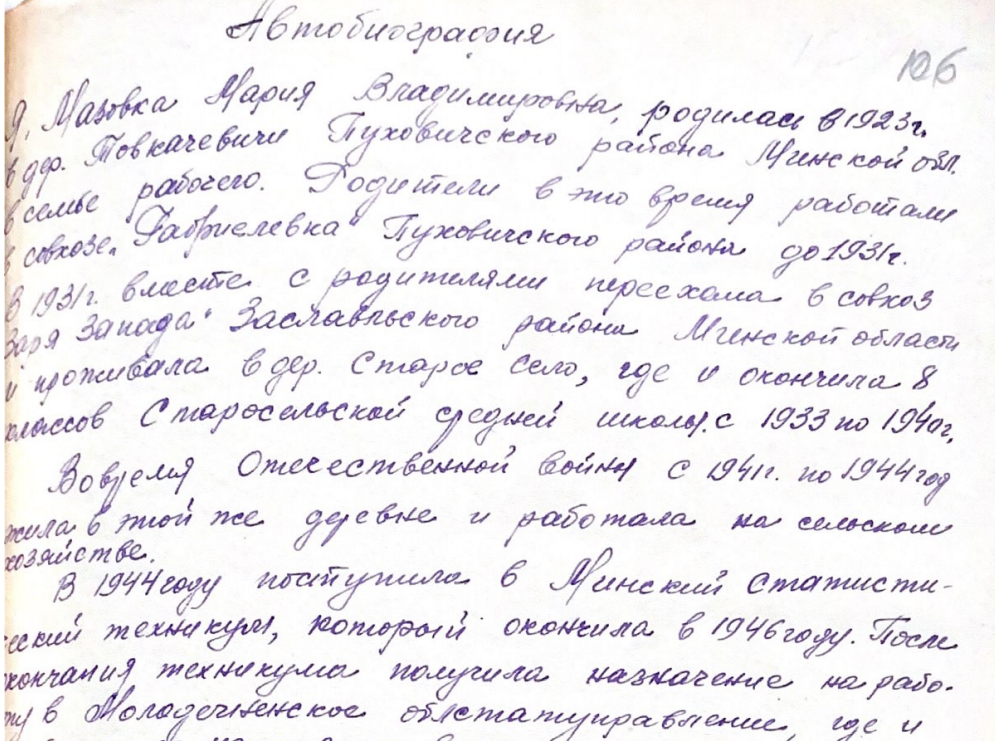 Автобиография
106
Я, Мазовка Мария Владимировна, родилась в 1923г.
в дер. Товкачевичи Пуховичского района Минской обл.
в семье рабочего. Родители в это время работали
в совхозе „Габриелевка" Пуховичского района до 1931г.
В 1931г. вместе с родителями переехала в совхоз
Заря Запада" Заславльского района Минской области
и проживала в дер. Старое Село, где и окончила 8
классов Старосельской средней школы. с 1933 по 1940г.
Во время Отечественной войны с 1941г. по 1944 год
жила в этой же деревне и работала на сельском
хозяйстве.
В 1944 году поступила в Минский статисти-
ческий техникум, который окончила в 1946 году. После
окончания техникума получила назначение на рабо-
ту в Молодечненское облстатуправление, где и